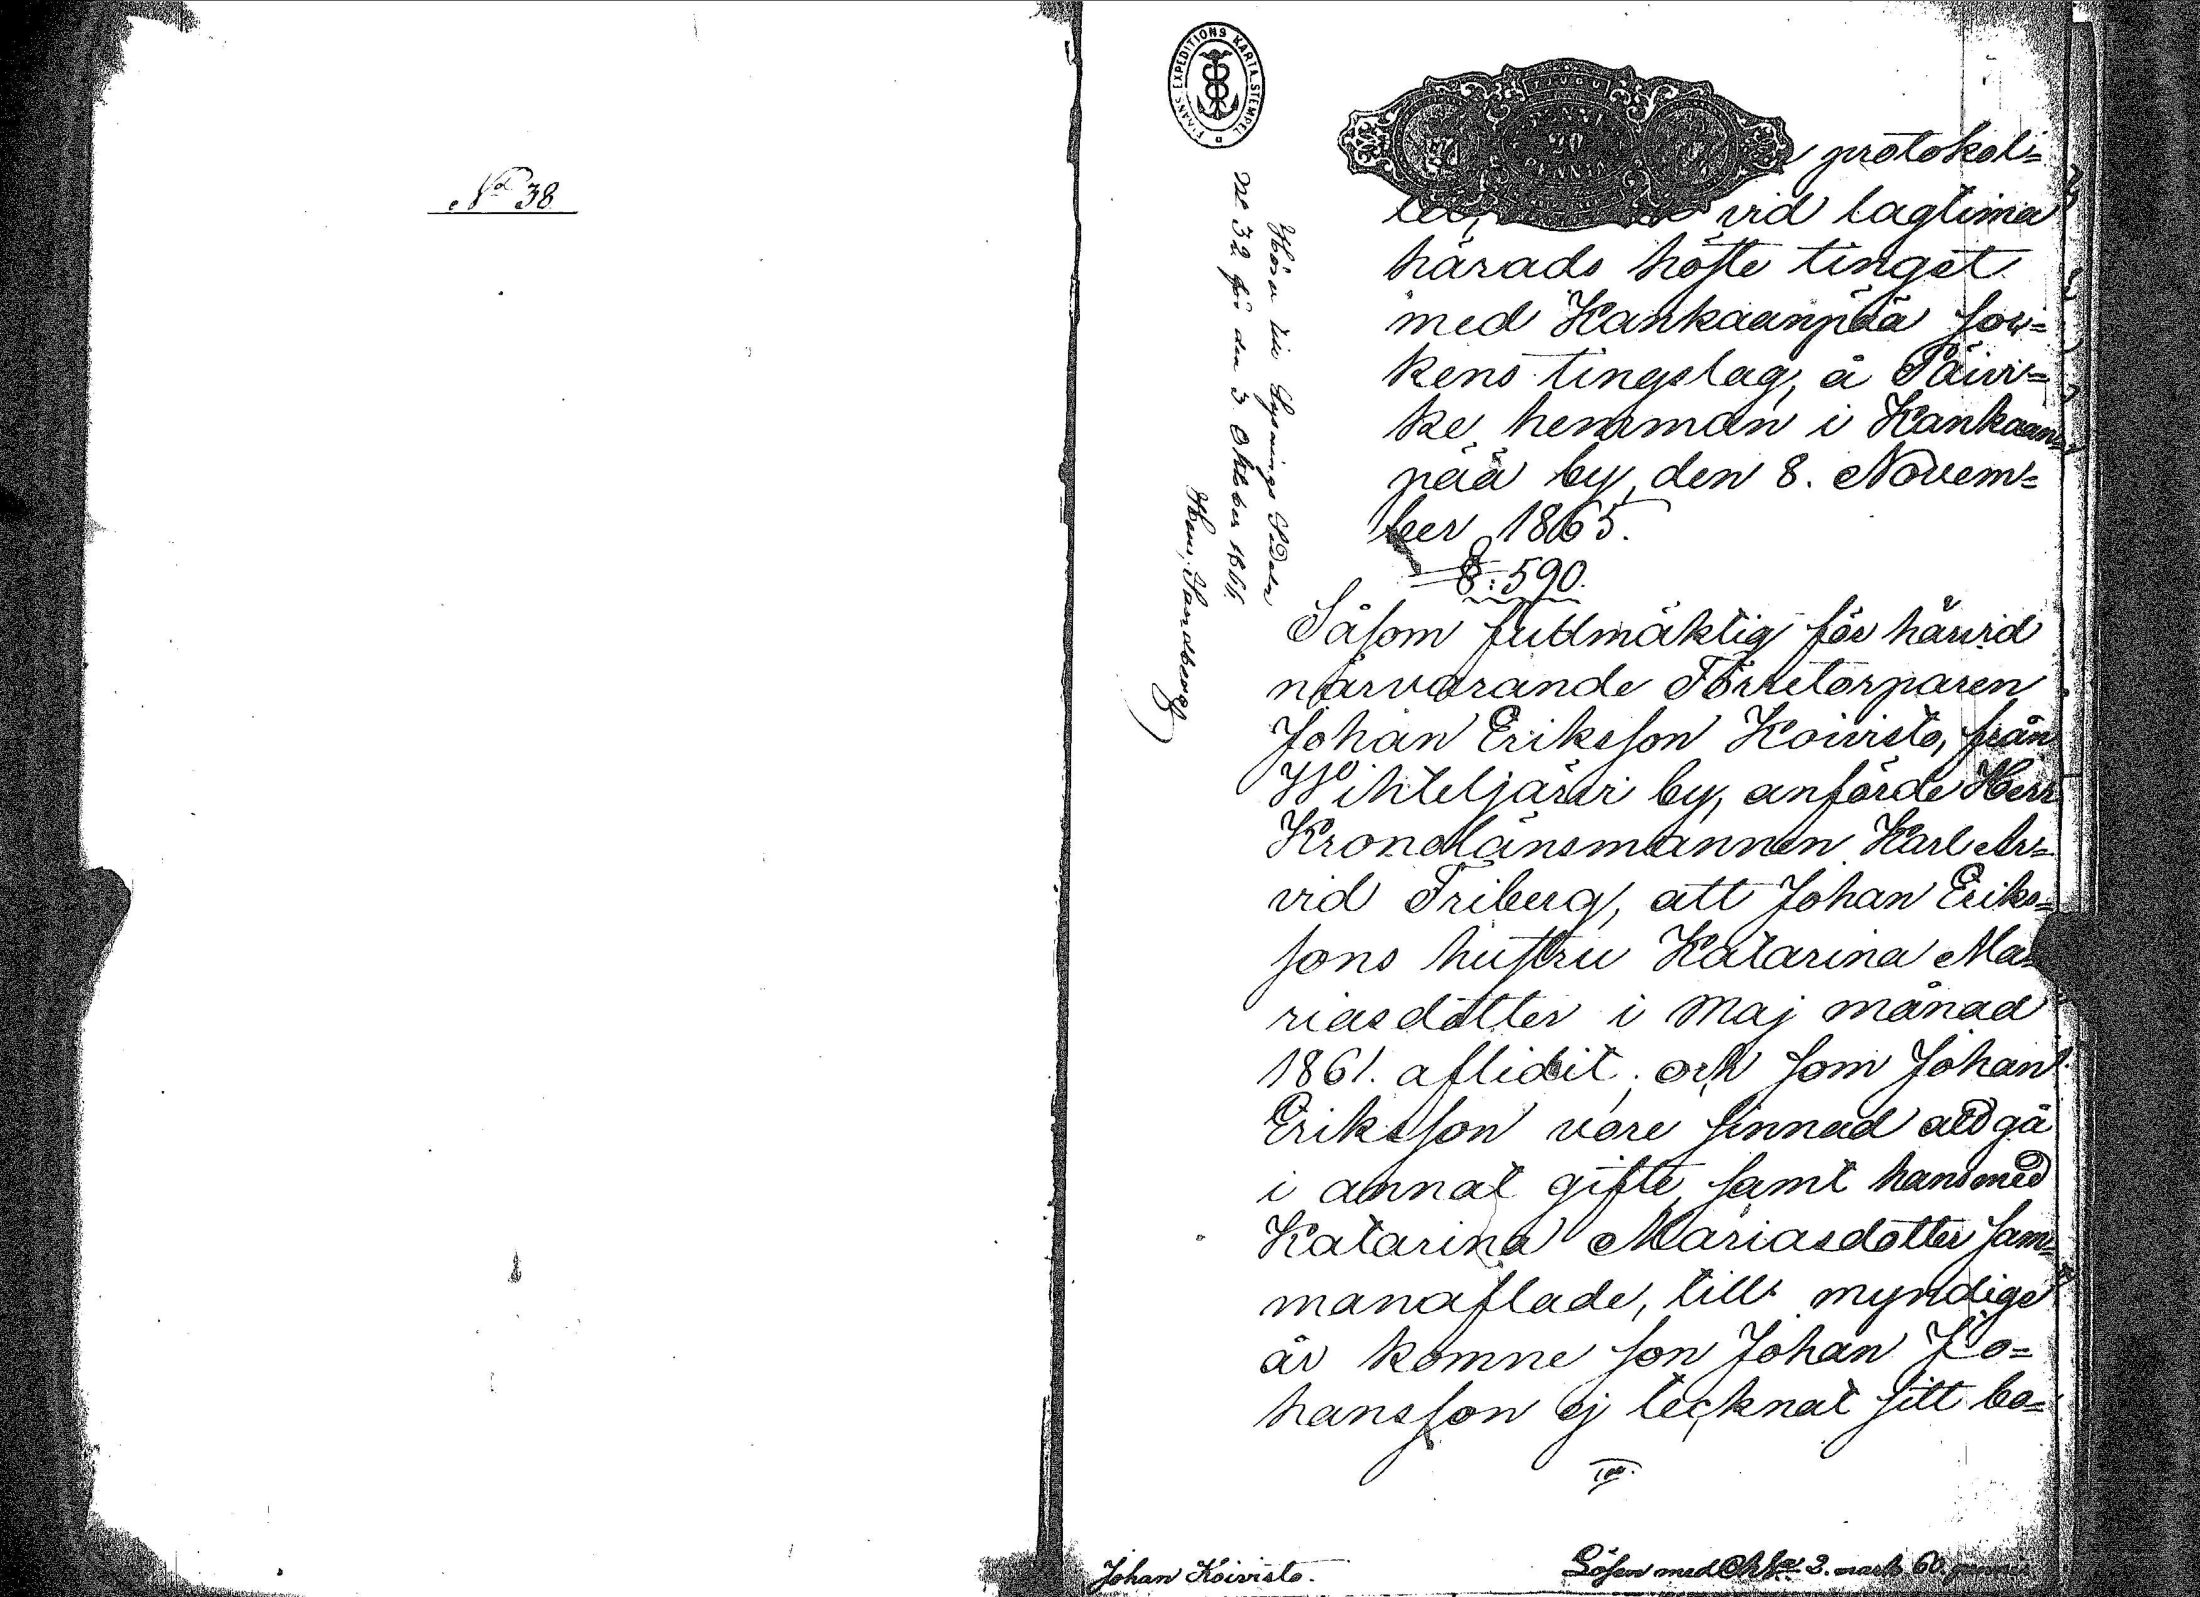 No 38
FINANS EXPEDITIONS KARTA STEMPEL
20
protokol=
vid lagtima
härads höste tinget
med Kankaanpää sow=
kens tingslag, å Päivi=
ke hemman i Kankaan=
pää by, den 8. Novem=
ber 1865.
§: 590.
Såsom fullmäktig för härvid
närvarande Förretorparen
Johan Eriksson Koivisto, från
Wihteljärvi by, anförde Herr
Kronolänsmannen Karl Ar=
vid Friberg, att Johan Eriks=
sons hustru Katarina Ma=
riasdotter i Maj månad
1861. aflidit, och som Johan
Eriksson vore sinnad att gå
i annat gifte, samt hans med
Katarina Mariasdotter sam=
manaflade, till myndige
år komne son Johan Jo=
hansson ej tecknat sitt bo=
Johan Koivisto.
Lösen med 3. mark 60.
No 32 för den 3. Oktober
Sandberg